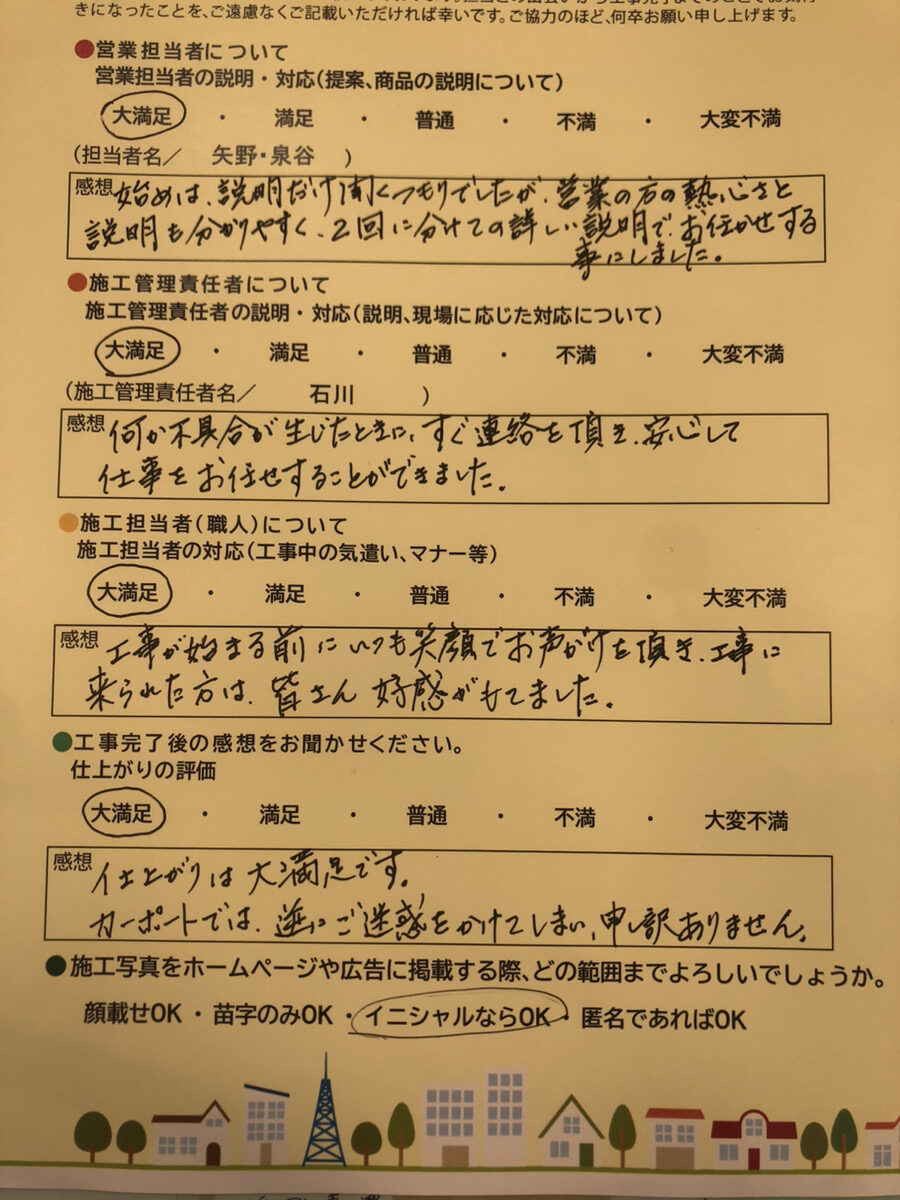 きになったことを、ご遠慮なくご記載いただければ幸いです。ご協力のほど、何卒お願い申し上げます。
●営業担当者について
営業担当者の説明・対応(提案、商品の説明について)
大満足 ・ 満足 ・ 普通 ・ 不満 ・ 大変不満
(担当者名／ 矢野・泉谷 )
感想 始めは、説明だけ聞くつもりでしたが、営業の方の熱心さと
説明も分かりやすく、2回に分けての詳しい説明で、お任かせする
事にしました。
●施工管理責任者について
施工管理責任者の説明・対応(説明、現場に応じた対応について)
大満足 ・ 満足 ・ 普通 ・ 不満 ・ 大変不満
(施工管理責任者名／ 石川 )
感想 何か不具合が生じたときに、すぐ連絡を頂き、安心して
仕事をお任せすることができました。
●施工担当者(職人)について
施工担当者の対応(工事中の気遣い、マナー等)
大満足 ・ 満足 ・ 普通 ・ 不満 ・ 大変不満
感想 工事が始まる前にいつも笑顔でお声がけを頂き、工事に
来られた方は、皆さん好感がもてました。
●工事完了後の感想をお聞かせください。
仕上がりの評価
大満足 ・ 満足 ・ 普通 ・ 不満 ・ 大変不満
感想 仕上がりは大満足です。
カーポートでは、逆にご迷惑をかけてしまい、申し訳ありません。
●施工写真をホームページや広告に掲載する際、どの範囲までよろしいでしょうか。
顔載せOK ・ 苗字のみOK ・ イニシャルならOK ・ 匿名であればOK